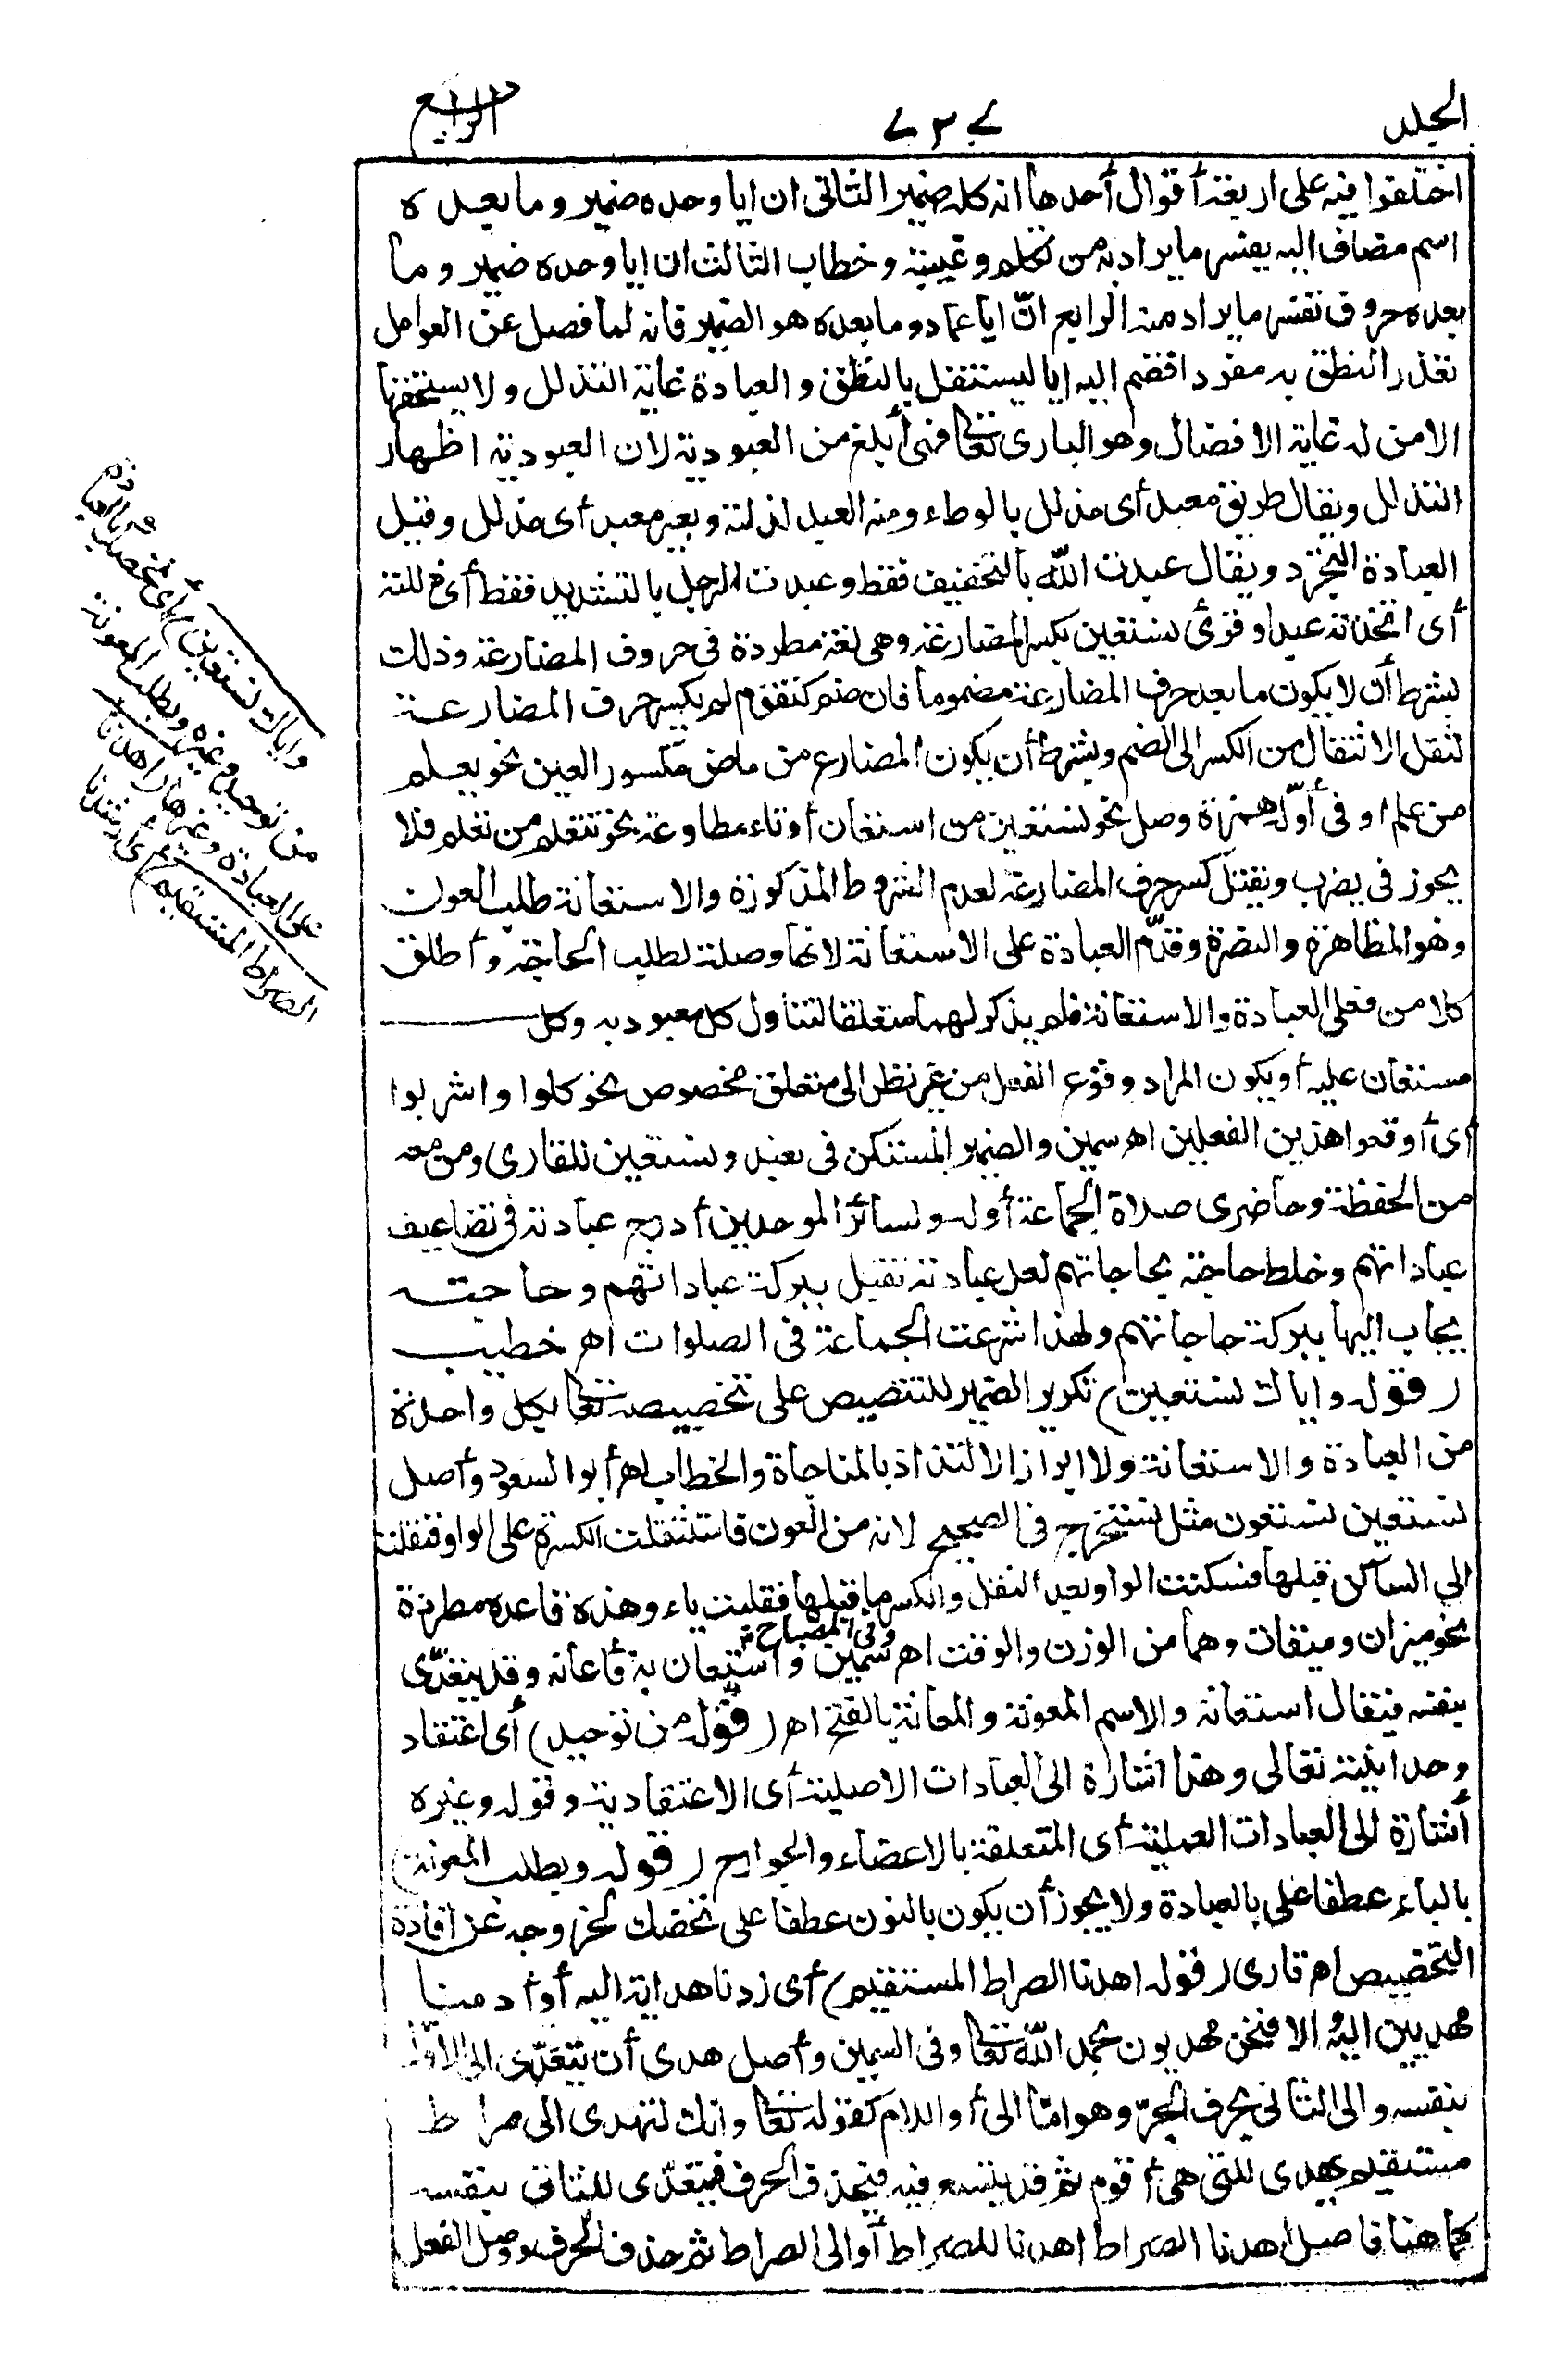 الجلد
٧٣٧
الرابع
اختلفوا فيه على اربعة أقوال أحدها انه كله ضمير الثانى ان ايا وحده ضمير وما بعده
اسم مضاف اليه يفسر ما يراد به من تكلم وغيبة وخطاب الثالث ان ايا وحده ضمير وما
بعده حروف تفسر ما يراد منه الرابع انّ ايا عماد وما بعده هو الضمير فانه لما فصل عن العوامل
تعذر النطق به مفردا فضم اليه ايا ليستقل بالنطق والعبادة غاية التذلل ولا يستحقها
الا من له غاية الافضال وهو البارى تعالى فهى أبلغ من العبودية لان العبودية اظهار
التذلل ويقال طريق معبد أى مذلل بالوطاء ومنه العبد لذلته وبعير معبد أى مذلل وقيل
العبادة التجرد ويقال عبدت الله بالتخفيف فقط وعبدت الرجل بالتشديد فقط أى ذللته
أى اتخذته عبدا وقرئ نستعين بكسر المضارعة وهى لغة مطردة فى حروف المضارعة وذلك
بشرط أن لا يكون ما بعد حرف المضارعة مضموما فان ضم كتقوم لم يكسر حرف المضارعة
لثقل الانتقال من الكسر الى الضم وبشرط أن يكون المضارع من ماض مكسور العين نحو يعلم
من علم أو فى أوّله همزة وصل نحو نستعين من استعان أو تاء مطاوعة نحو تتعلم من تعلم فلا
يجوز فى يضرب ويقتل كسر حرف المضارعة لعدم الشروط المذكورة والاستعانة طلب العون
وهو المظاهرة والنصرة وقدّم العبادة على الاستعانة لانها وصلة لطلب الحاجة وأطلق
كلا من فعلى العبادة والاستعانة فلم يذكر لهما متعلقا لتناول كل معبود به وكل
مستعان عليه أو يكون المراد وقوع الفعل من غير نظر الى متعلق مخصوص نحو كلوا واشربوا
أى أوقعوا هذين الفعلين اهـ سمين والضمير المستكن فى نعبد ونستعين للقارى ومن معه
من الحفظة وحاضرى صلاة الجماعة أو له ولسائر الموحدين أدرج عبادته فى تضاعيف
عباداتهم وخلط حاجته بحاجاتهم لعل عبادته تقبل ببركة عباداتهم وحاجته
يجاب اليها ببركة حاجاتهم ولهذا شرعت الجماعة فى الصلوات اهـ خطيب
(قوله واياك نستعين) تكرير الضمير للتنصيص على تخصيصه تعالى بكل واحدة
من العبادة والاستعانة ولابراز الالتذاذ بالمناجاة والخطاب اهـ أبو السعود وأصل
نستعين نستعون مثل نستخرج فى الصحيح لانه من العون فاستثقلت الكسرة على الواو فنقلت
الى الساكن قبلها فسكنت الواو بعد النقل وانكسر ما قبلها فقلبت ياء وهذه قاعدة مطردة
نحو ميزان وميقات وهما من الوزن والوقت اهـ سمين وفى المصباح واستعان به فأعانه وقد يتعدّى
بنفسه فيقال استعانه والاسم المعونة والمعانة بالفتح اهـ (قوله من توحيد) أى اعتقاد
وحدانيته تعالى وهذا اشارة الى العبادات الاصلية أى الاعتقادية وقوله وغيره
أشارة الى العبادات العملية أى المتعلقة بالاعضاء والجوارح (قوله وبطلب المعونة)
بالباء عطفا على بالعبادة ولا يجوز أن يكون بالنون عطفا على نخصك لخروجه عن افادة
التخصيص اهـ قارى (قوله اهدنا الصراط المستقيم) أى زدنا هداية اليه أو أدمنا
مهديين اليه والا فنحن مهديون بحمد الله تعالى وفى السمين وأصل هدى أن يتعدّى الى الاوّل
بنفسه والى الثانى بحرف الجرّ وهو امّا الى أو اللام كقوله تعالى وانك لتهدى الى صراط
مستقيم يهدى للتى هى أقوم ثم قد يتسع فيه فيحذف الحرف فيتعدّى للثانى بنفسه
كما هنا فاصل اهدنا الصراط اهدنا للصراط أو الى الصراط ثم حذف الحرف ووصل الفعل
واياك نستعين) أى نخصك بالعبادة
من توحيد وغيره وبطلب المعونة
على العبادة وغيرها (اهدنا
الصراط المستقيم) أى أرشدنا